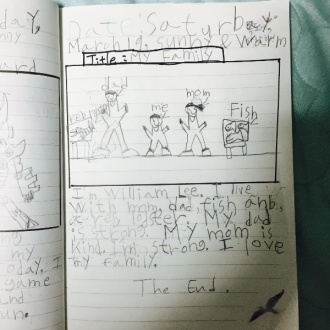 Date: Satyrbay,
March 14, sunny & warm
Title: My Family
dad
me
mom
Fish
I'm William Lee. I live
with mom, dad fish anb,
My dad
is strong. My mom is
kind. I'm strong. I love
my family.
The End.
day,
nny
ng
my
oday. I
game
and
un.